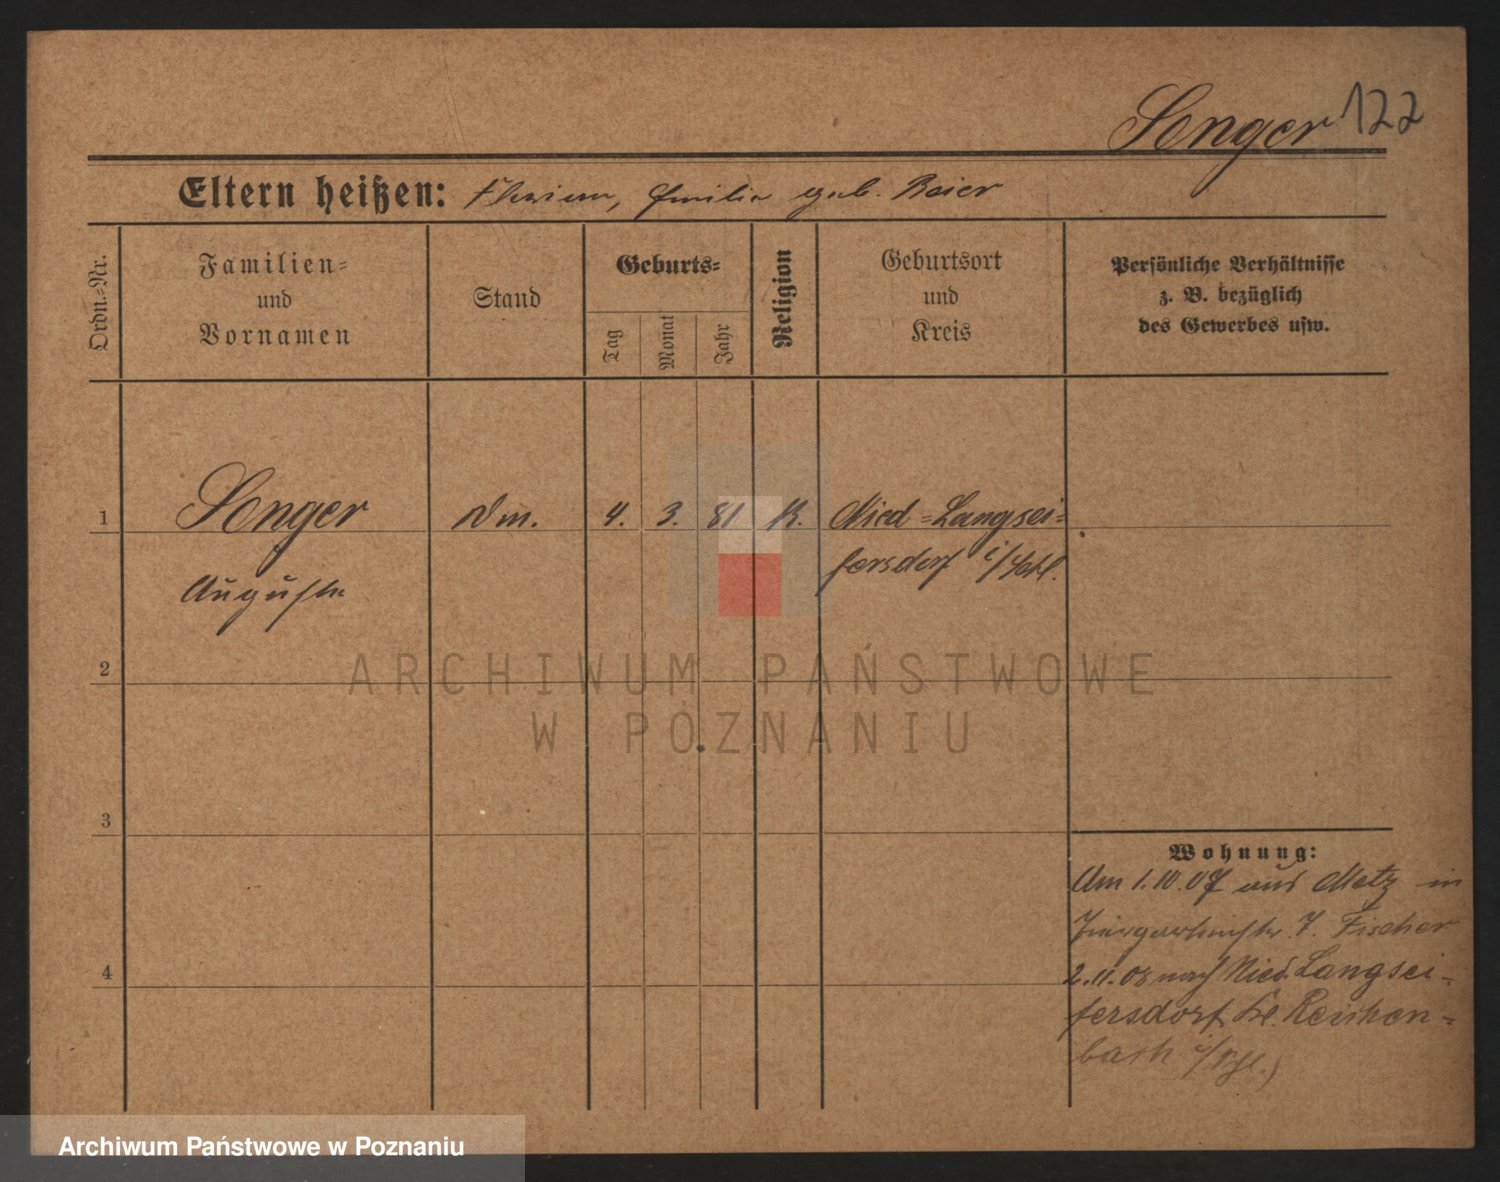 Senger 122
Eltern heißen: Florian, Emilie geb. Beier
Ordn.-Nr.
Familien-
und
Vornamen
Stand
Geburts-
Tag
Monat
Jahr
Religion
Geburtsort
und
Kreis
Persönliche Verhältnisse
z. B. bezüglich
des Gewerbes usw.
1 Senger Dm. 4. 3. 81 K. Nied-Langsei-
fersdorf i/Schl.
Auguste
2
3
4
Wohnung:
Am 1.10.07 aus Metz in
7. Fischer
2.11.08 nach Nied. Langsei-
fersdorf, Kr. Reichen-
bach
ARCHIWUM PAŃSTWOWE
W POZNANIU
Archiwum Państwowe w Poznaniu